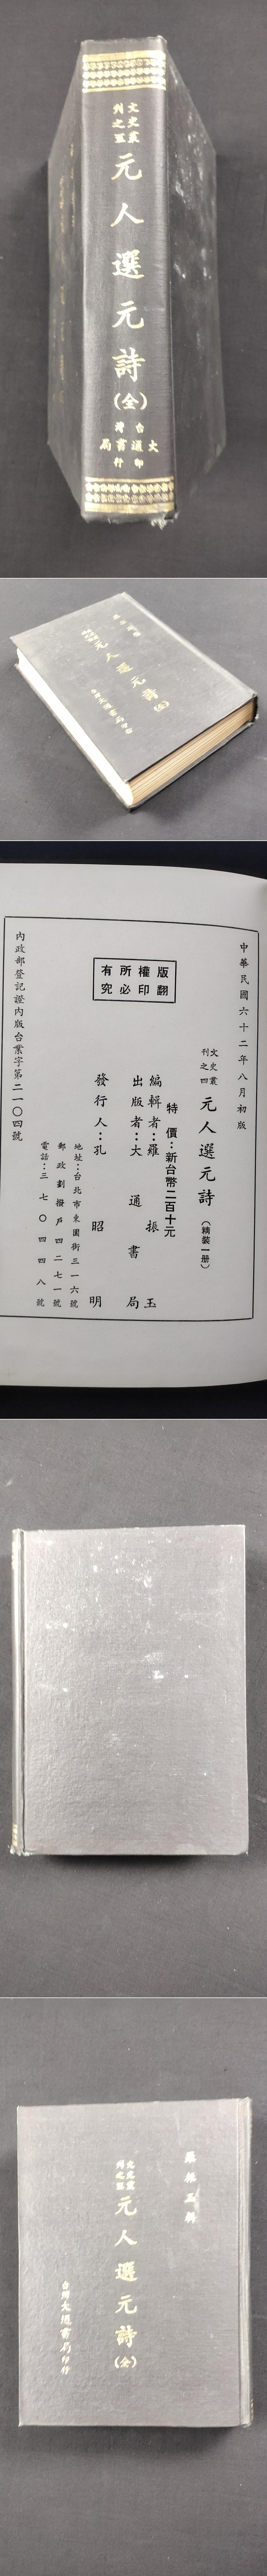 文史叢
刊之四
元人選元詩
(全)
台灣
大通書局
印行
元人選元詩
(全)
中華民國六十二年八月初版
文史叢
刊之四
元人選元詩
(精裝一册)
特價:新台幣二百十元
編輯者:羅振玉
出版者:大通書局
發行人:孔昭明
地址:台北市東園街三一六號
郵政劃撥戶四二七一號
電話:三七〇四四八號
版權所有
翻印必究
內政部登記證內版台業字第二一〇四號
羅振玉輯
文史叢
刊之四
元人選元詩
(全)
台灣大通書局印行